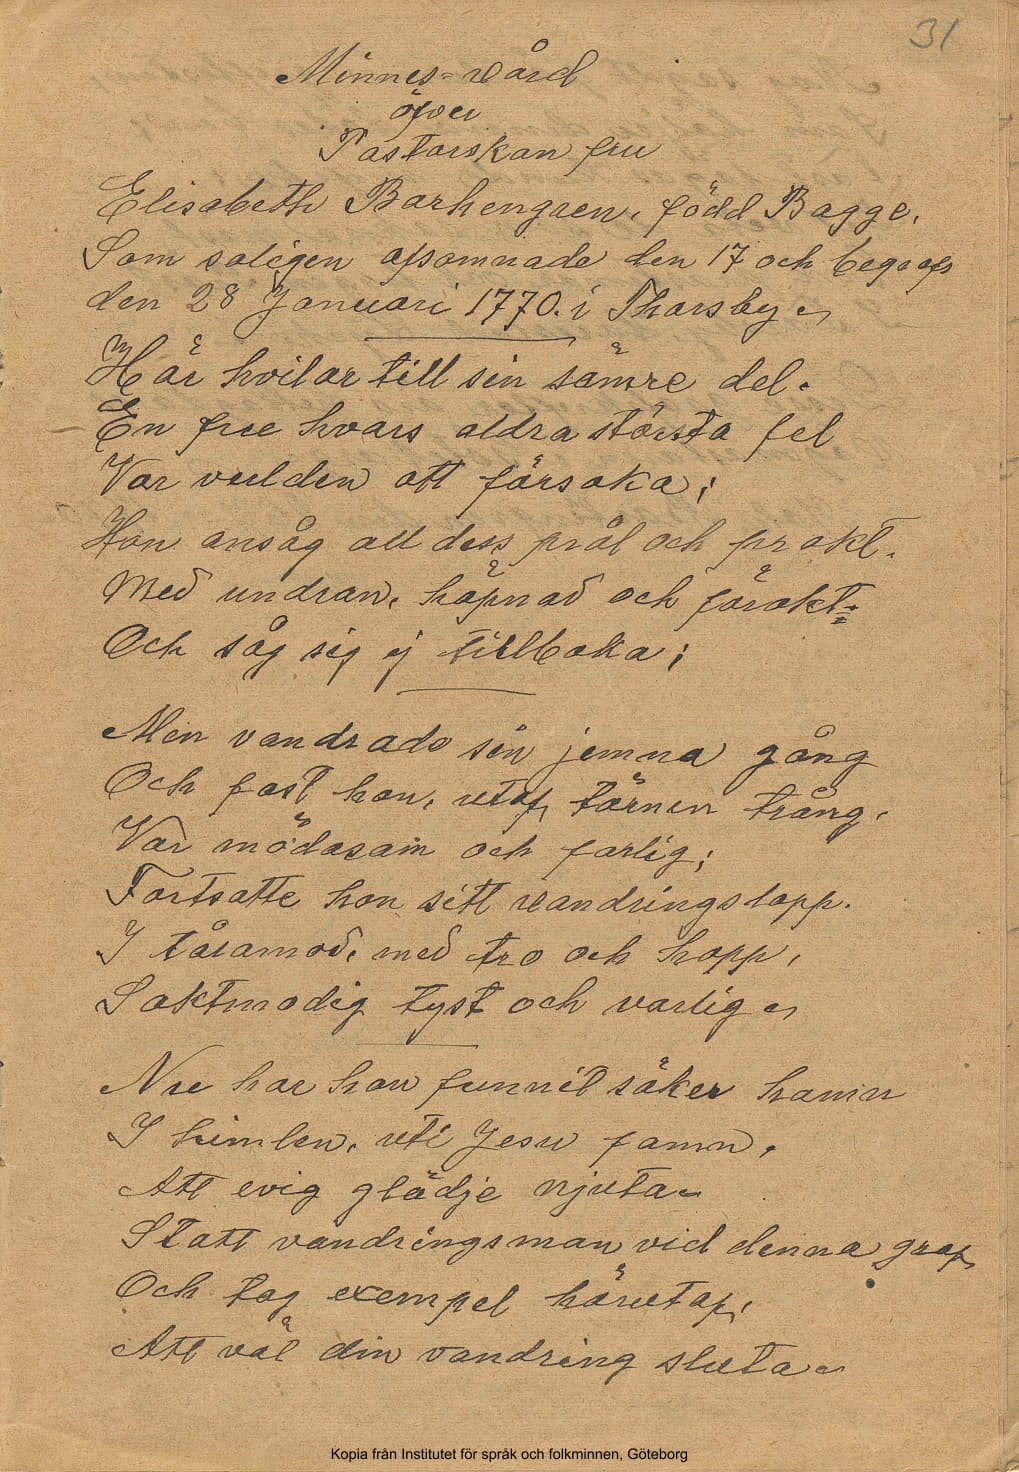 31
Minnes-vård
öfver
Pastorskan fru
Elisabeth Barhengren, född Bagge,
Som saligen afsomnade den 17 och begrafs
den 28 Januari 1770. i Thorsby.
Här hvilar till sin sämre del.
En fru hvars aldra största fel
Var verlden att försaka;
Hon ansåg all dess prål och prakt.
Med undran, häpnad och förakt;
Och såg sig ej tillbaka;
Men vandrade sin jemna gång
Och fast hon, utaf törnen trång,
Var mödasam och farlig;
Fortsatte hon sitt vandringslopp.
I tålamod, med tro och hopp,
Saktmodig tyst och varlig.
Nu har hon funnit säker hamn
I himlen, uti Jesu famn,
Att evig glädje njuta.
Statt vandringsman vid denna graf
Och tag exempel härutaf,
Att väl din vandring sluta.
Kopia från Institutet för språk och folkminnen, Göteborg